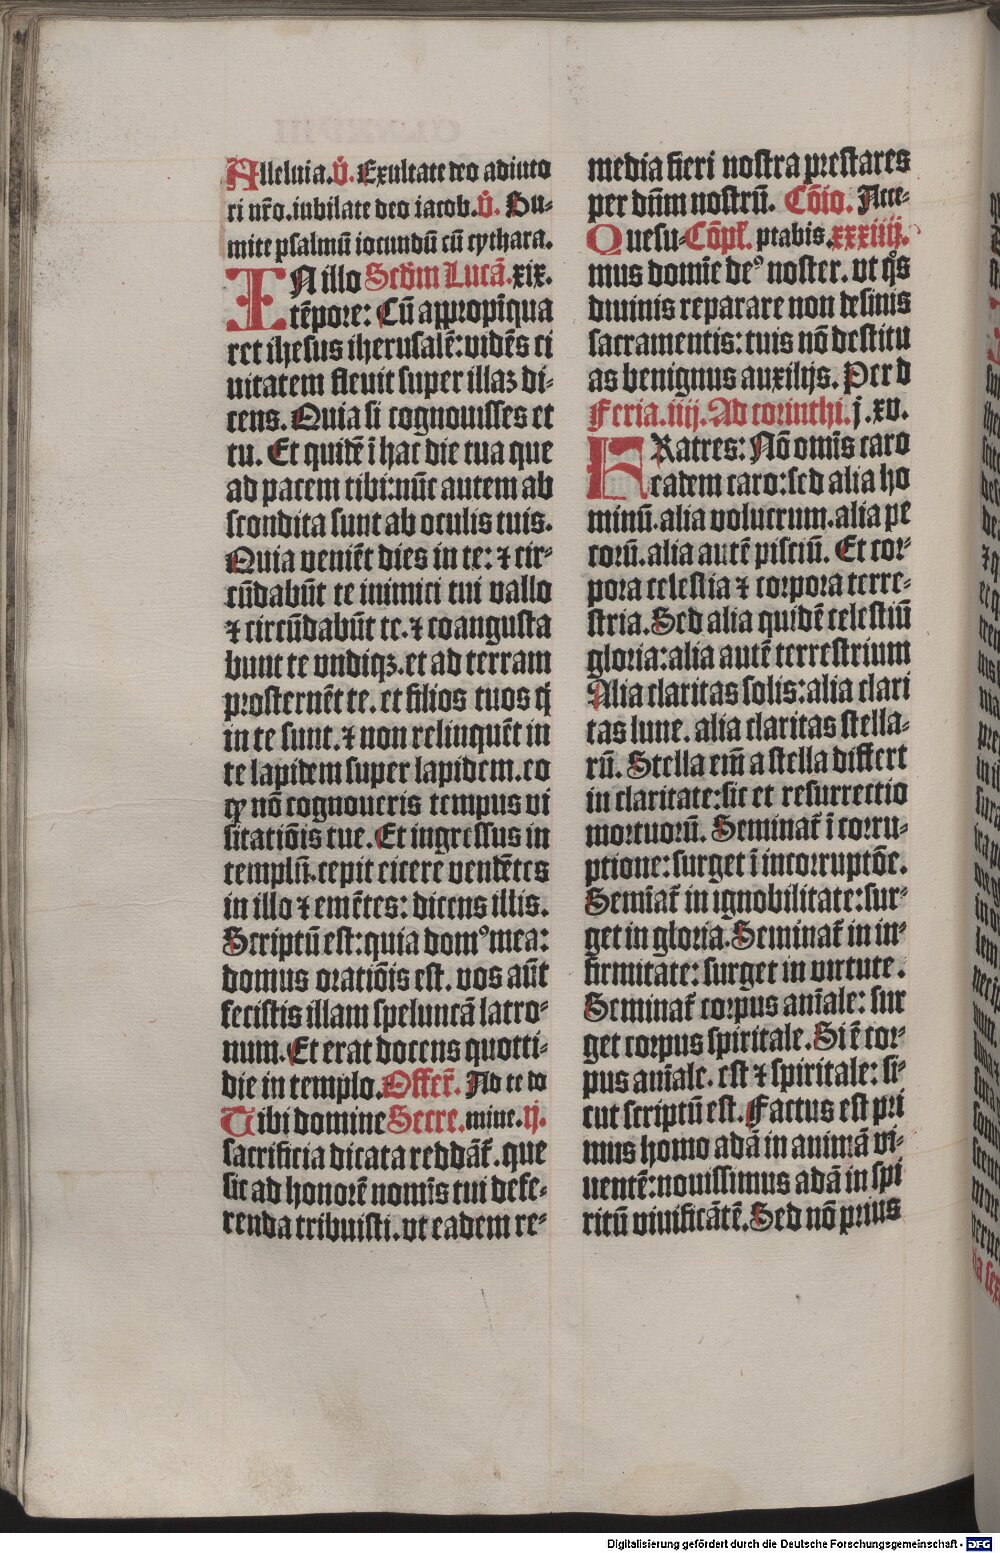 Alleluia. v̄. Exultate deo adiuto
ri nr̄o. iubilate deo iacob. v̄. Su-
mite psalmū iocundū cū cythara.
IN illo Scdm̄ Lucā. xix.
tēpore: Cū appropīqua
ret ihesus iherusalē: vidēs ci
uitatem fleuit super illaꝫ di-
cens. Quia si cognouisses et
tu. Et quidē ī hac die tua que
ad pacem tibi: nūc autem ab
scondita sunt ab oculis tuis.
Quia veniēt dies in te: ⁊ cir-
cūdabūt te inimici tui vallo
⁊ circūdabūt te. ⁊ coangusta
bunt te vndiqꝫ. et ad terram
prosternēt te. et filios tuos q̄
in te sunt. ⁊ non relinquēt in
te lapidem super lapidem. eo
ꝙ nō cognoueris tempus vi
sitatiōis tue. Et ingressus in
templū. cepit eicere vendētes
in illo ⁊ emētes: dicens illis.
Scriptū est: quia domꝰ mea:
domus oratiōis est. vos aūt
fecistis illam speluncā latro-
num. Et erat docens quotti-
die in templo. Offer̄. Ad te do
Tibi domine Secre. mine. ij.
sacrificia dicata reddāt̄. que
sic ad honorē nomīs tui defe-
renda tribuisti. vt eadem re-
media fieri nostra prestares
per dn̄m nostrū. Cōio. Acce-
Quesu- Cōpl̄. ptabis. xxxiiij.
mus domīe deꝰ noster. vt qͦs
diuinis reparare non desinis
sacramentis: tuis nō destitu
as benignus auxilijs. Per d
Feria. iiij. Ad corinthi. j. xv.
FRatres: Nō omīs caro
eadem caro: sed alia ho
minū. alia volucrum. alia pe
corū. alia autē pisciū. Et cor-
pora celestia ⁊ corpora terre-
stria. Sed alia quidē celestiū
gloria: alia autē terrestrium
Alia claritas solis: alia clari
tas lune. alia claritas stella-
rū. Stella em̄ a stella differt
in claritate: sic et resurrectio
mortuorū. Seminat̄ ī corru-
ptione: surget ī incorruptōe.
Semīat̄ in ignobilitate: sur-
get in gloria. Seminat̄ in in-
firmitate: surget in virtute.
Seminat̄ corpus anīale: sur
get corpus spiritale. Si ē cor-
pus anīale. est ⁊ spiritale: si-
cut scriptū est. Factus est pri
mus homo adā in animā vi-
uentē: nouissimus adā in spi
ritū viuificātē. Sed nō prius
Digitalisierung gefördert durch die Deutsche Forschungsgemeinschaft - DFG